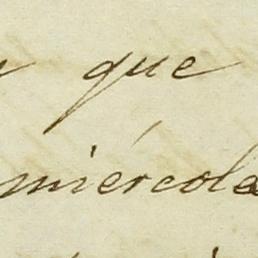 que
miércole